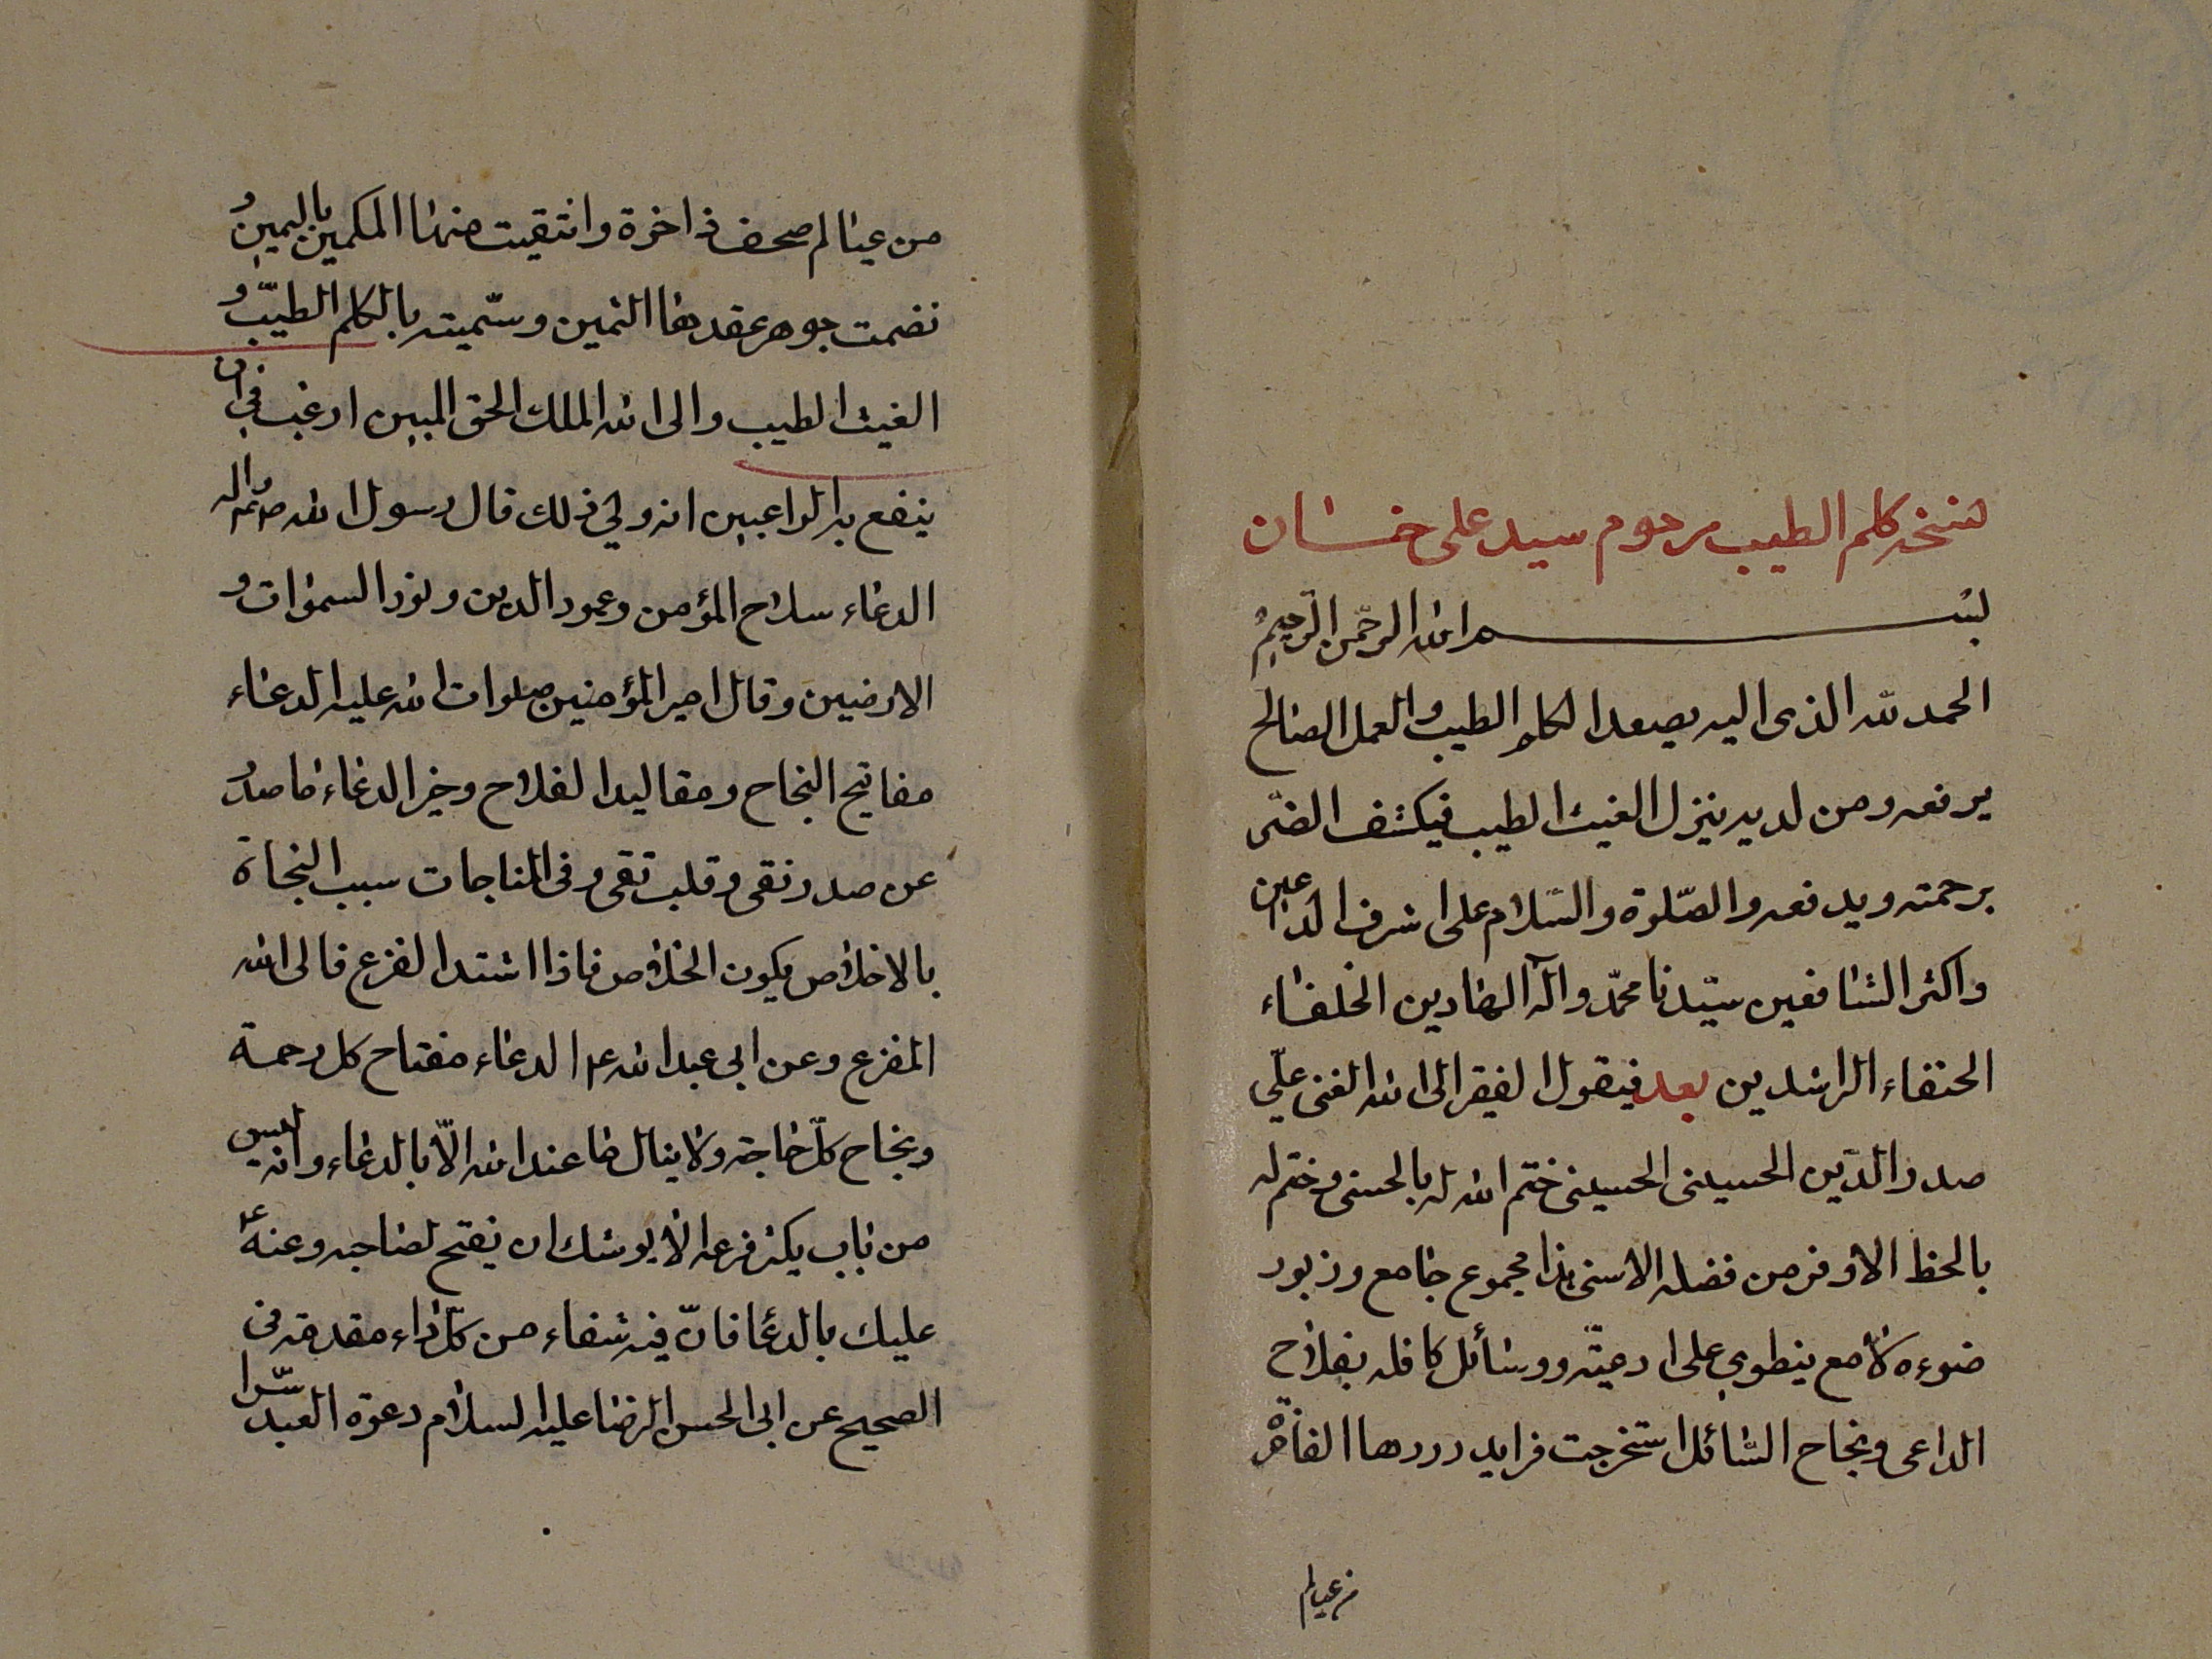 نسخه كلم الطيب مرحوم سيد على خان
بسم الله الرحمن الرحيم
الحمد لله الذى اليه يصعد الكلم الطيب والعمل الصالح
يرفعه ومن لديه ينزل الغيث الطيب فيكشف الضر
برحمته ويدفعه والصّلوة والسّلام على اشرف الداعين
واكثر الشافعين سيّدنا محمّد وآله الهادين الخلفاء
الحنفاء الراشدين بعد فيقول الفقير الى الله الغنى علّي
صدر الدّين الحسينى الحسينى ختم الله له بالحسنى وختم له
بالحظ الاوفر من فضله الاسنى هذا مجموع جامع وزبور
ضوءه لامع ينطوي على ادعيّة ورسائل كافله بفلاح
الداعى ونجاح السّائل استخرجت فرايد دررها الفاخرة
من عيالم
من عيالم صحف ذاخرة وانتقيت منها المكمين باليمين و
نضمت جوهر عقدها الثمين وسمّيته بالكلم الطيّب و
الغيث الطيب والى الله الملك الحق المبين ارغب في ان
ينفع به الراغبين انه ولي ذلك قال رسول الله صلى الله عليه واله
الدعاء سلاح المؤمن وعمود الدين ونور السموات و
الارضين وقال امير المؤمنين صلوات الله عليه الدعاء
مفاتيح النجاح ومقاليد الفلاح وخير الدعاء ما صدر
عن صدر نقى وقلب تقى وفى المناجات سبب النجاة
بالاخلاص يكون الخلاص فاذا اشتد الفزع فالى الله
المفزع وعن ابى عبد الله ع الدعاء مفتاح كل رحمة
ونجاح كلّ حاجة ولا ينال ما عند الله الّا بالدعاء وانه ليس
من باب يكثر قرعه الا يوشك ان يفتح لصاحبه وعنه ع
عليك بالدعا فانّ فيه شفاء من كلّ داء مقدمه فى
الصحيح عن ابى الحسن الرضا عليه السلام دعوة العبد سّرا